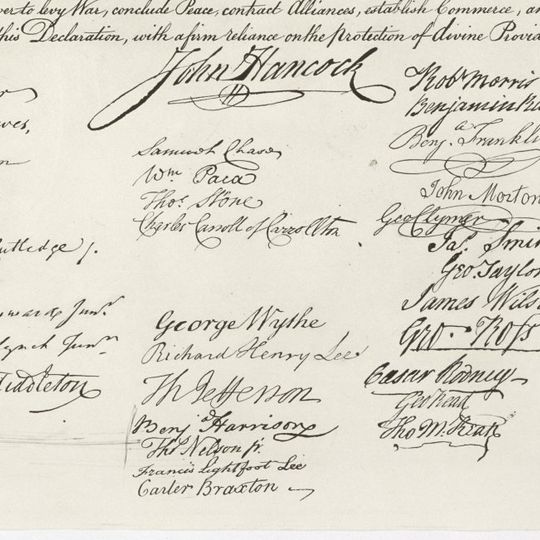 to levy War, conclude Peace, contract Alliances, establish Commerce, an
this Declaration, with a firm reliance on the protection of divine Provid
John Hancock
Samuel Chase
Wm. Paca
Thos. Stone
Charles Carroll of Carrollton
George Wythe
Richard Henry Lee
Th Jefferson
Benja Harrison
Thos Nelson jr.
Francis Lightfoot Lee
Carter Braxton
utledge /.
eyward Junr.
ynch Junr.
iddleton
Robt Morris
Benjamin Ru
Benja. Franklin
John Morton
Geo Clymer
Jas. Smit
Geo. Taylor
James Wils
Geo. Ross
Caesar Rodney
Geo Read
Tho M:Kean